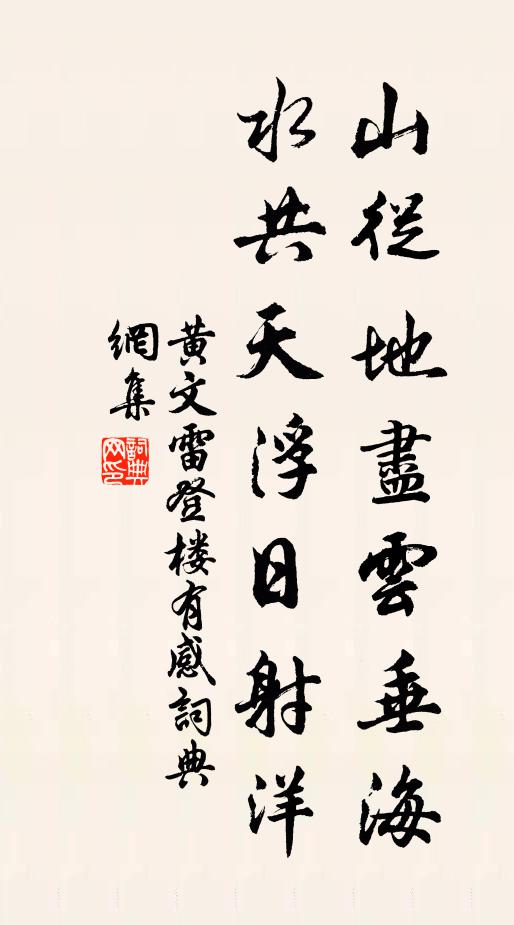 山從地盡雲垂海
水共天浮日射洋
黃文雷登楼有感詞典
網集
詞典
网印